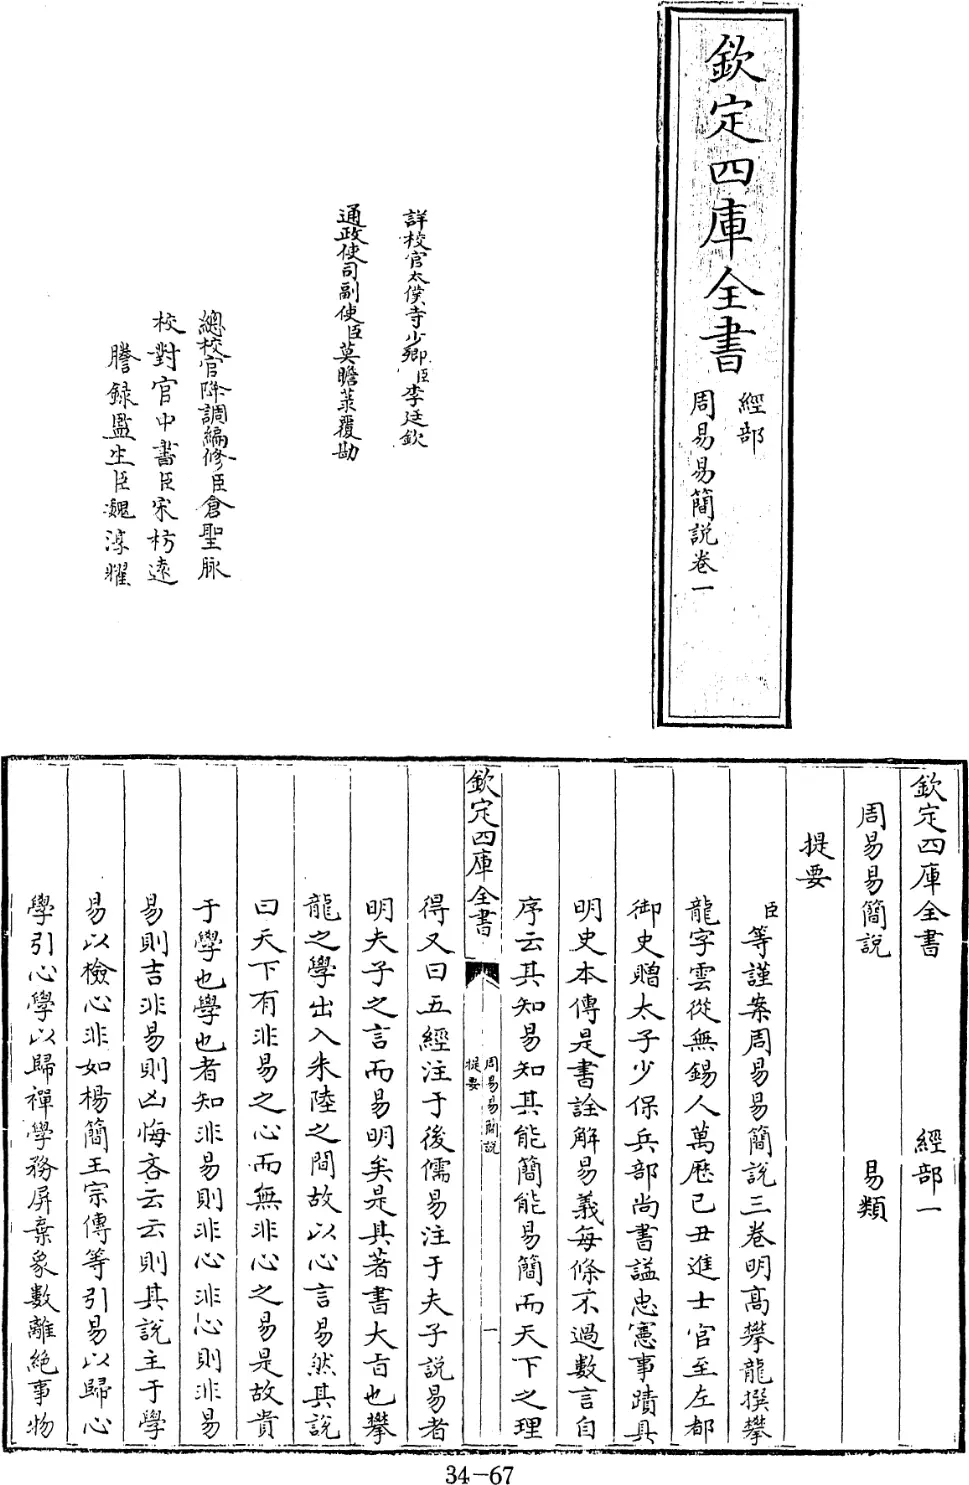 欽定四庫全書
經部
周易易簡說卷一
詳校官太僕寺少卿臣李廷欽
通政使司副使臣莫瞻菉覆勘
總校官降調編修臣倉聖脉
校對官中書臣宋枋遠
謄録監生臣魏淳耀
欽定四庫全書 經部一
周易易簡說 易類
提要
臣等謹案周易易簡說三卷明高攀龍撰攀
龍字雲從無錫人萬厯己丑進士官至左都
御史贈太子少保兵部尚書諡忠憲事蹟具
明史本傳是書詮解易義每條不過數言自
序云其知易知其能簡能易簡而天下之理
欽定四庫全書
周易易簡說
提要
一
得又曰五經注于後儒易注于夫子說易者
明夫子之言而易明矣是其著書大旨也攀
龍之學出入朱陸之間故以心言易然其說
曰天下有非易之心而無非心之易是故貴
于學也學也者知非易則非心非心則非易
易則吉非易則凶悔吝云云則其說主于學
易以檢心非如楊簡王宗傳等引易以歸心
學引心學以歸禪學務屏棄象數離絶事物
34-67